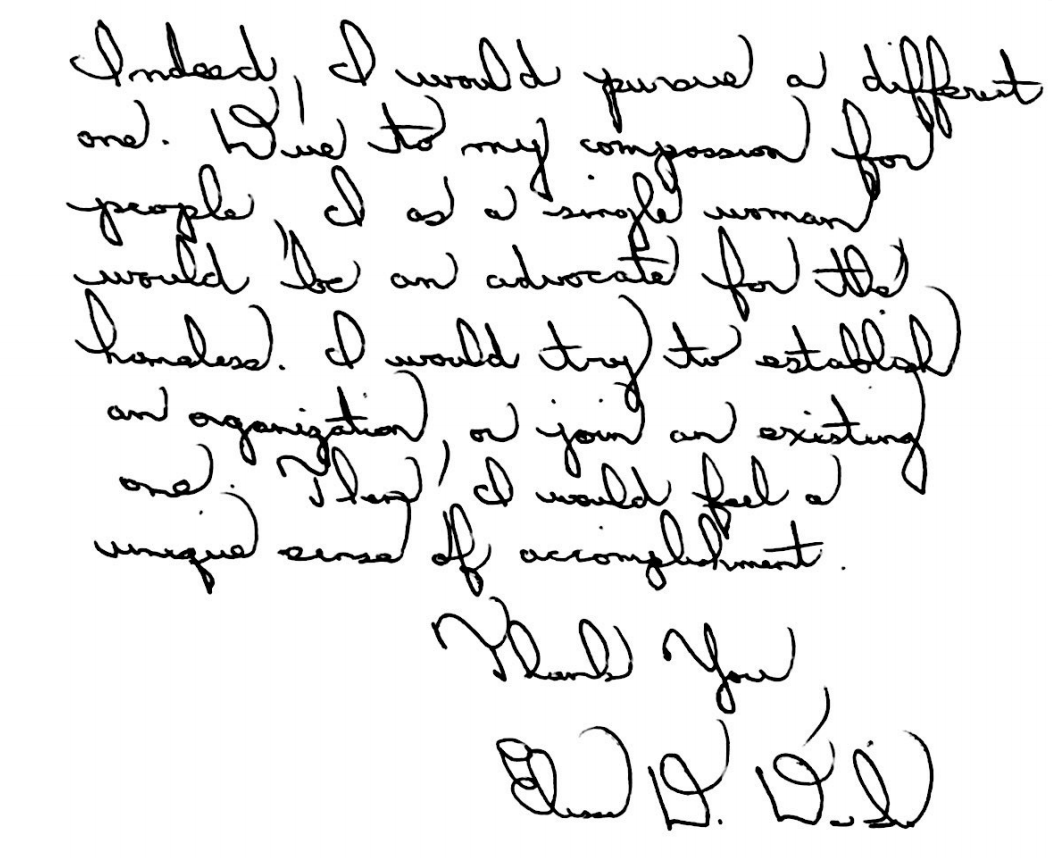 Indeed, I would pursue a different
one. Due to my compassion for
people, I as a single woman
would be an advocate for the
homeless. I would try to establish
an organization, or join an existing
one. Then, I would feel a
unique sense of accomplishment.
Thank You
D.